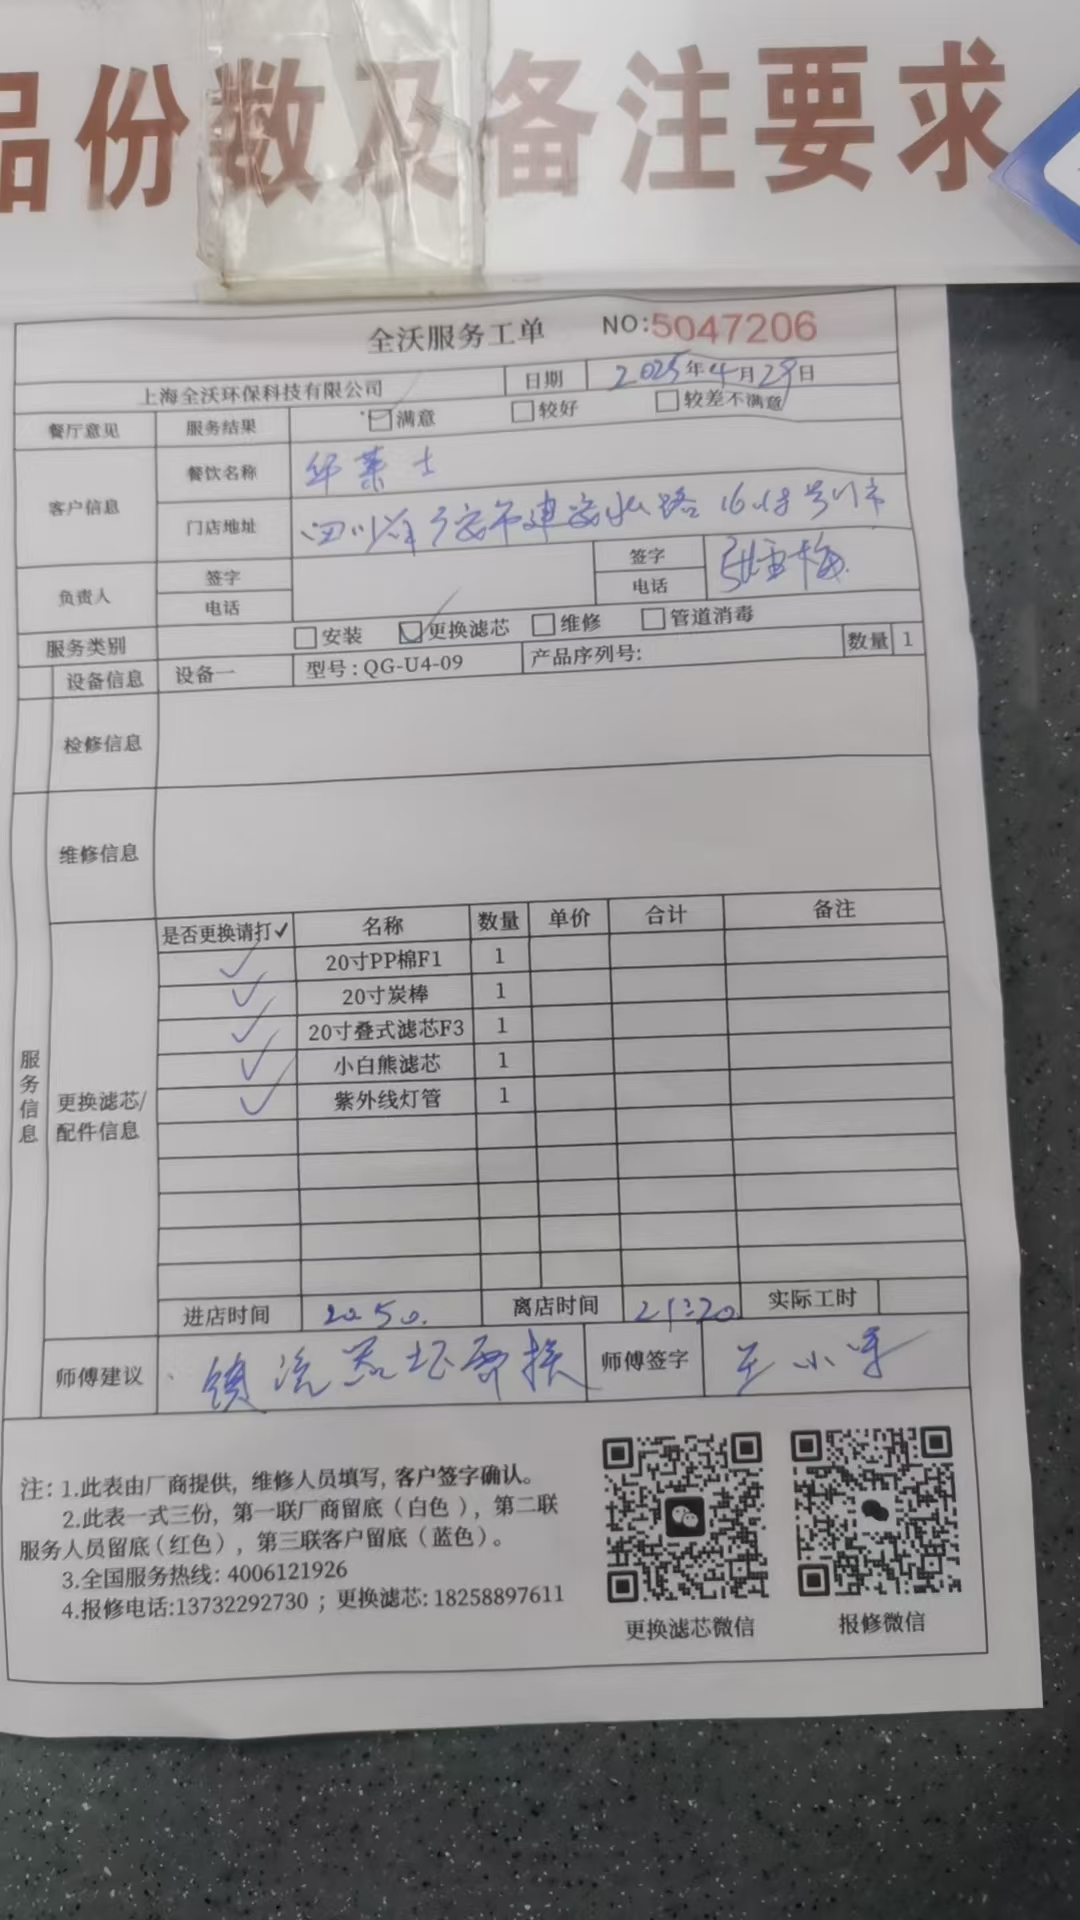 品份数及备注要求
全沃服务工单 NO:5047206
上海全沃环保科技有限公司 日期 2025年4月29日
餐厅意见 服务结果 满意 较好 较差不满意
客户信息 餐饮名称 华莱士
门店地址 四川省广安市建安北路16.18号门市
负责人 签字 签字 张雪梅
电话 电话
服务类别 安装 更换滤芯 维修 管道消毒
设备信息 设备一 型号:QG-U4-09 产品序列号: 数量 1
检修信息
维修信息
服务信息
更换滤芯/配件信息
是否更换请打✓ 名称 数量 单价 合计 备注
✓ 20寸PP棉F1 1
✓ 20寸炭棒 1
✓ 20寸叠式滤芯F3 1
✓ 小白熊滤芯 1
✓ 紫外线灯管 1
进店时间 20.50. 离店时间 21:20. 实际工时
师傅建议 师傅签字 王小
注: 1.此表由厂商提供, 维修人员填写, 客户签字确认。
2.此表一式三份, 第一联厂商留底 (白色), 第二联
服务人员留底 (红色), 第三联客户留底 (蓝色)。
3.全国服务热线: 4006121926
4.报修电话:13732292730 ; 更换滤芯: 18258897611
更换滤芯微信 报修微信